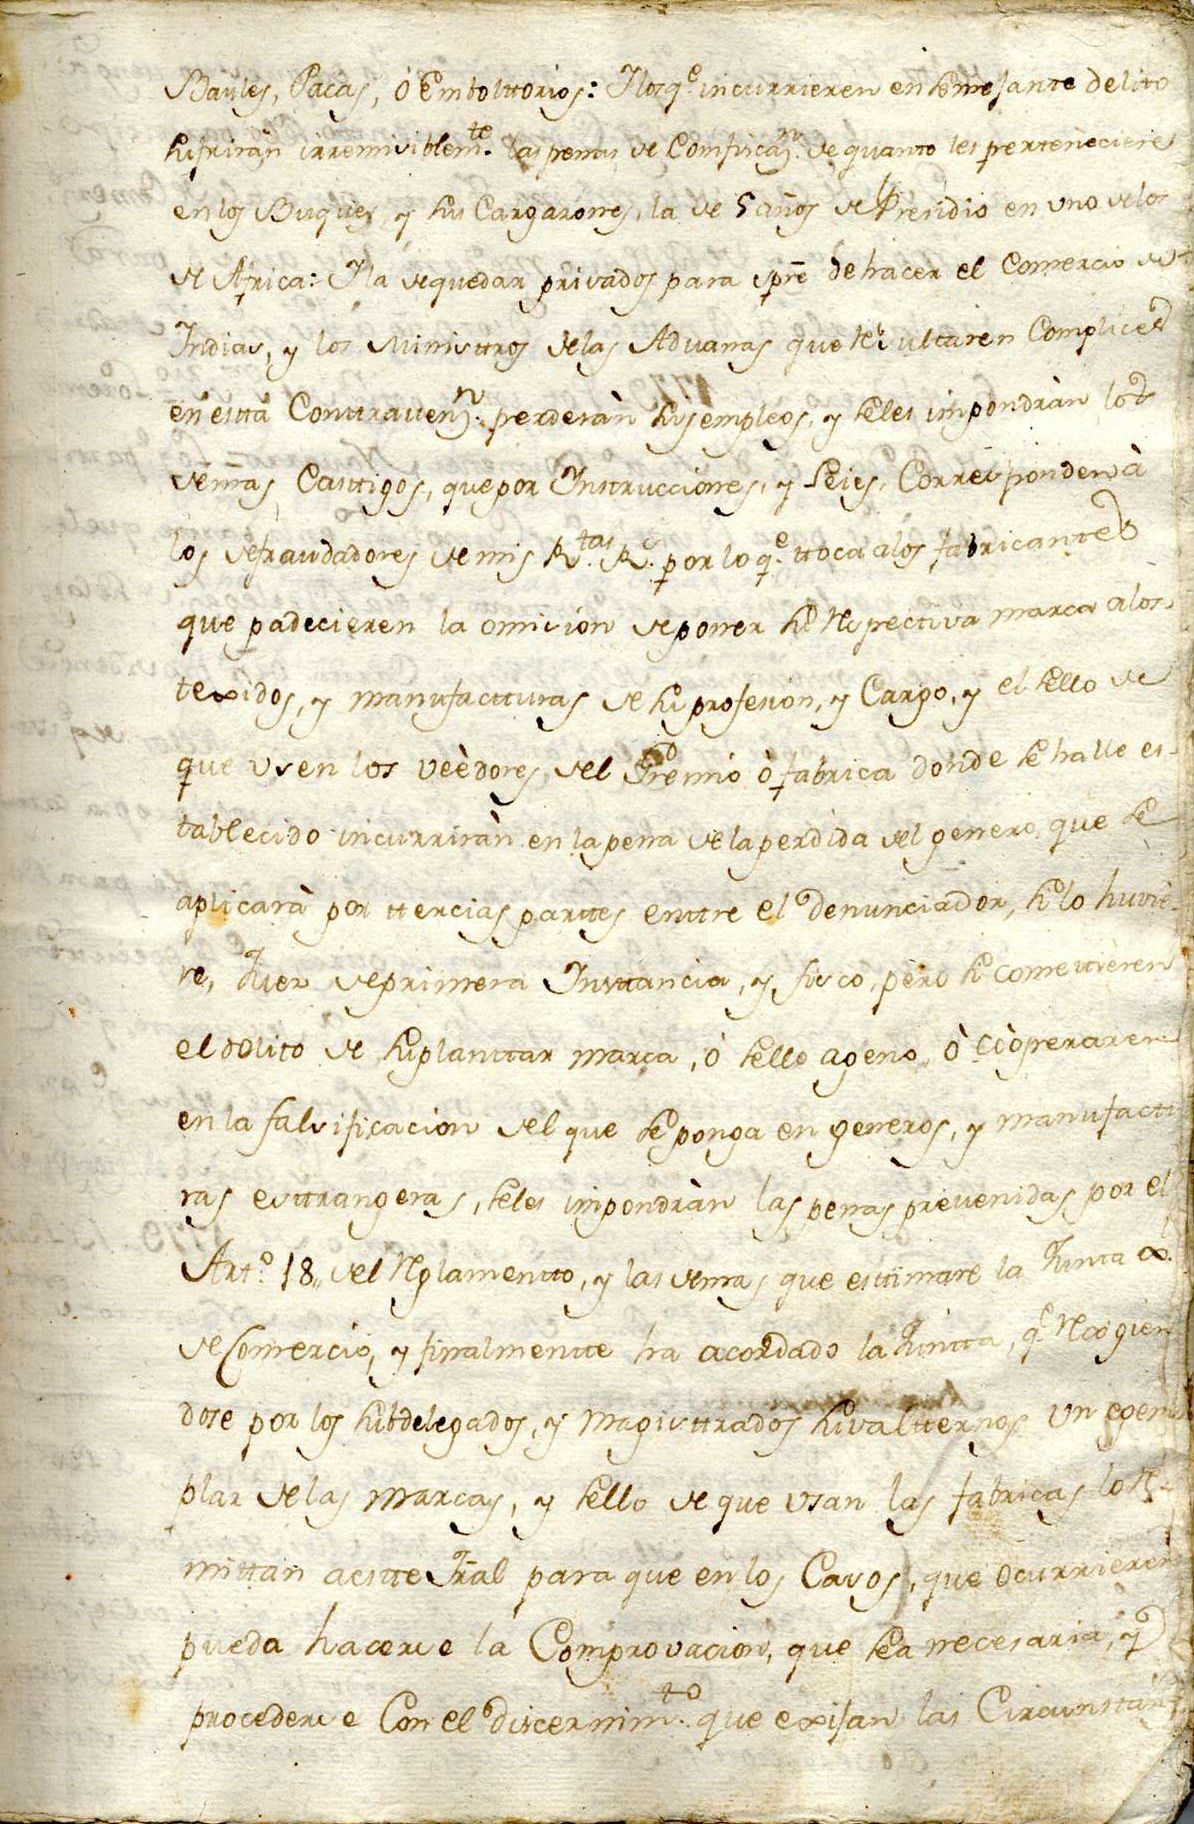 Baules, Pacas, ó Emboltorios: Ylosq.e incurrieren en semejante delito
sufriràn irremisiblem.te las penas de Comfiscaz.n de quanto les perteneciere
en los Buques, y sus Cargazones, la de 5 años de Presidio en uno de los
de Africa: Yla de quedar privados para spre de hacer el Comercio de
Indias, y los Ministros de las Aduanas que resultaren Complices
en estta Conttravenz.n perderàn sus empleos, y seles impondràn los
demas Casttigos, que por Instrucciones, y Leies, Corresponden à
los defraudadores de mis R.tas R.s por lo q.e ttoca alos fabricantes
que padecieren la omision de poner su respectiva marca alos
texidos, y manufactturas de su profesion, y Cargo, y el sello de
que usen los veèdores del Gremio ò fabrica donde se halle es-
tablecido incurriràn en la pena de la perdida del genero, que se
aplicarà por ttercias parttes enttre el denunciador, si lo huvie-
re, Juez de primera Insttancia, y fisco, pero si comettieren
el delito de suplanttar marca, ó sello ageno, ò coòperaren
en la falsificacion del que se ponga en generos, y manufactu
ras esttrangeras, seles impondràn las penas prevenidas por el
Art.o 18,, del Reglamentto, y las demas que esttimare la Junta Gl.
de Comercio, y finalmentte ha acordado la Juntta, q.e Recogien
dose por los subdelegados, y Magisttrados suvaltternos un egem
plar de las marcas, y sello de que usan las fabricas lo Re-
mittan a estte Tral para que en los Casos, que ocurrieren
pueda hacerse la Comprovacion, que sea necesaria, y
procederse Con el discernim.to que exijan las Circunsttan